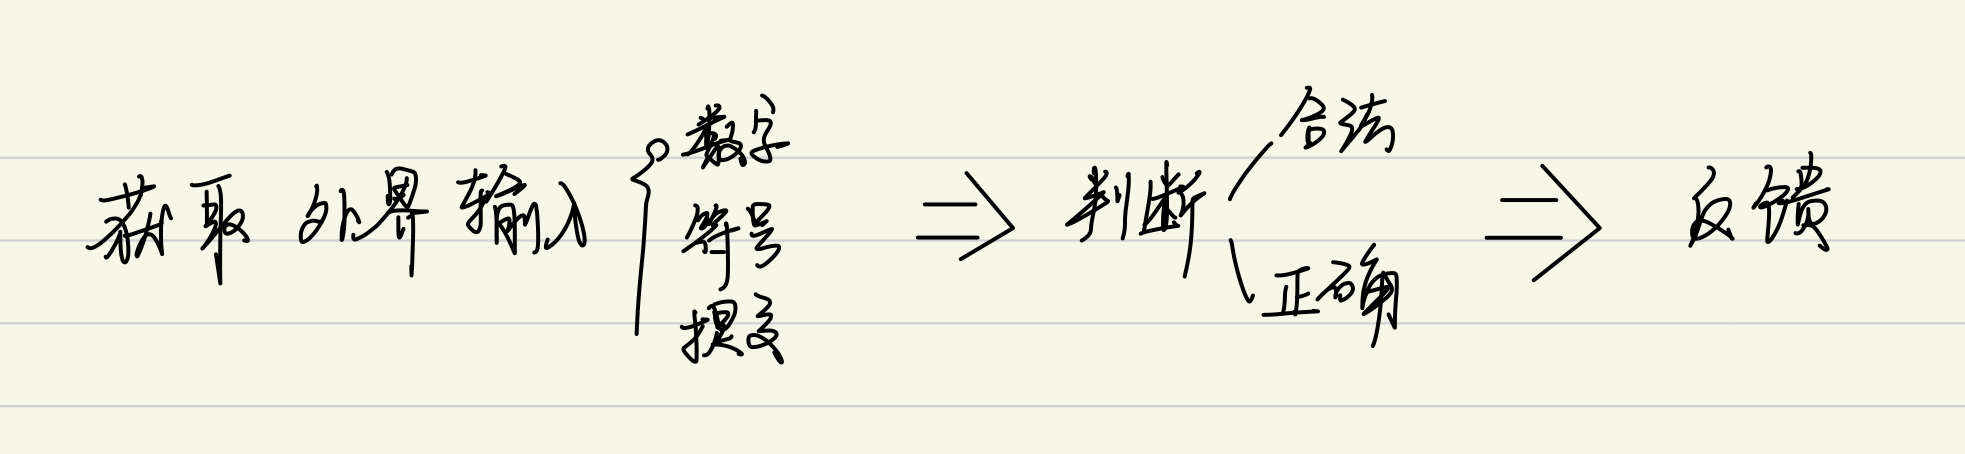 获取 外界 输入 { 数字
符号
提交
⇒ 判断
合法
正确
⇒ 反馈